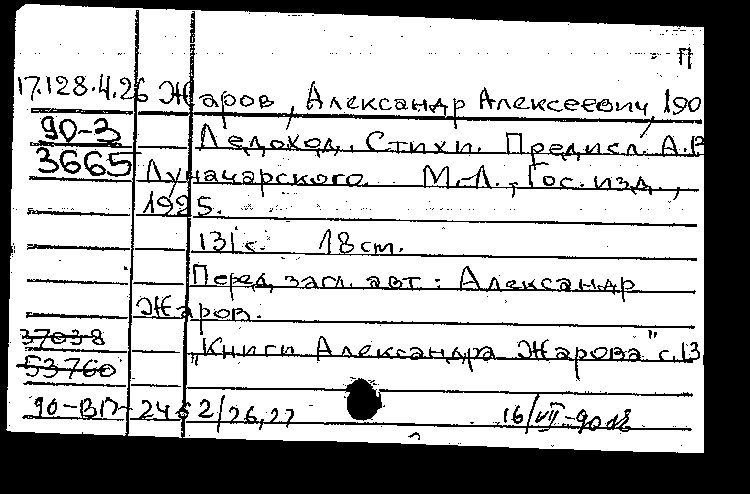 П
17.128.4.26 Жаров, Александр Алексеевич, 190
90-3 Ледоход. Стихи. Предисл. А.В
3665 Луначарского. М.-Л., Гос. изд.,
1925.
131 с. 18 cm.
Перед загл. авт.: Александр
Жаров.
37038 „Книги Александра Жарова" с.13
53760
90-ВП-2462/26,27 16/VII-90